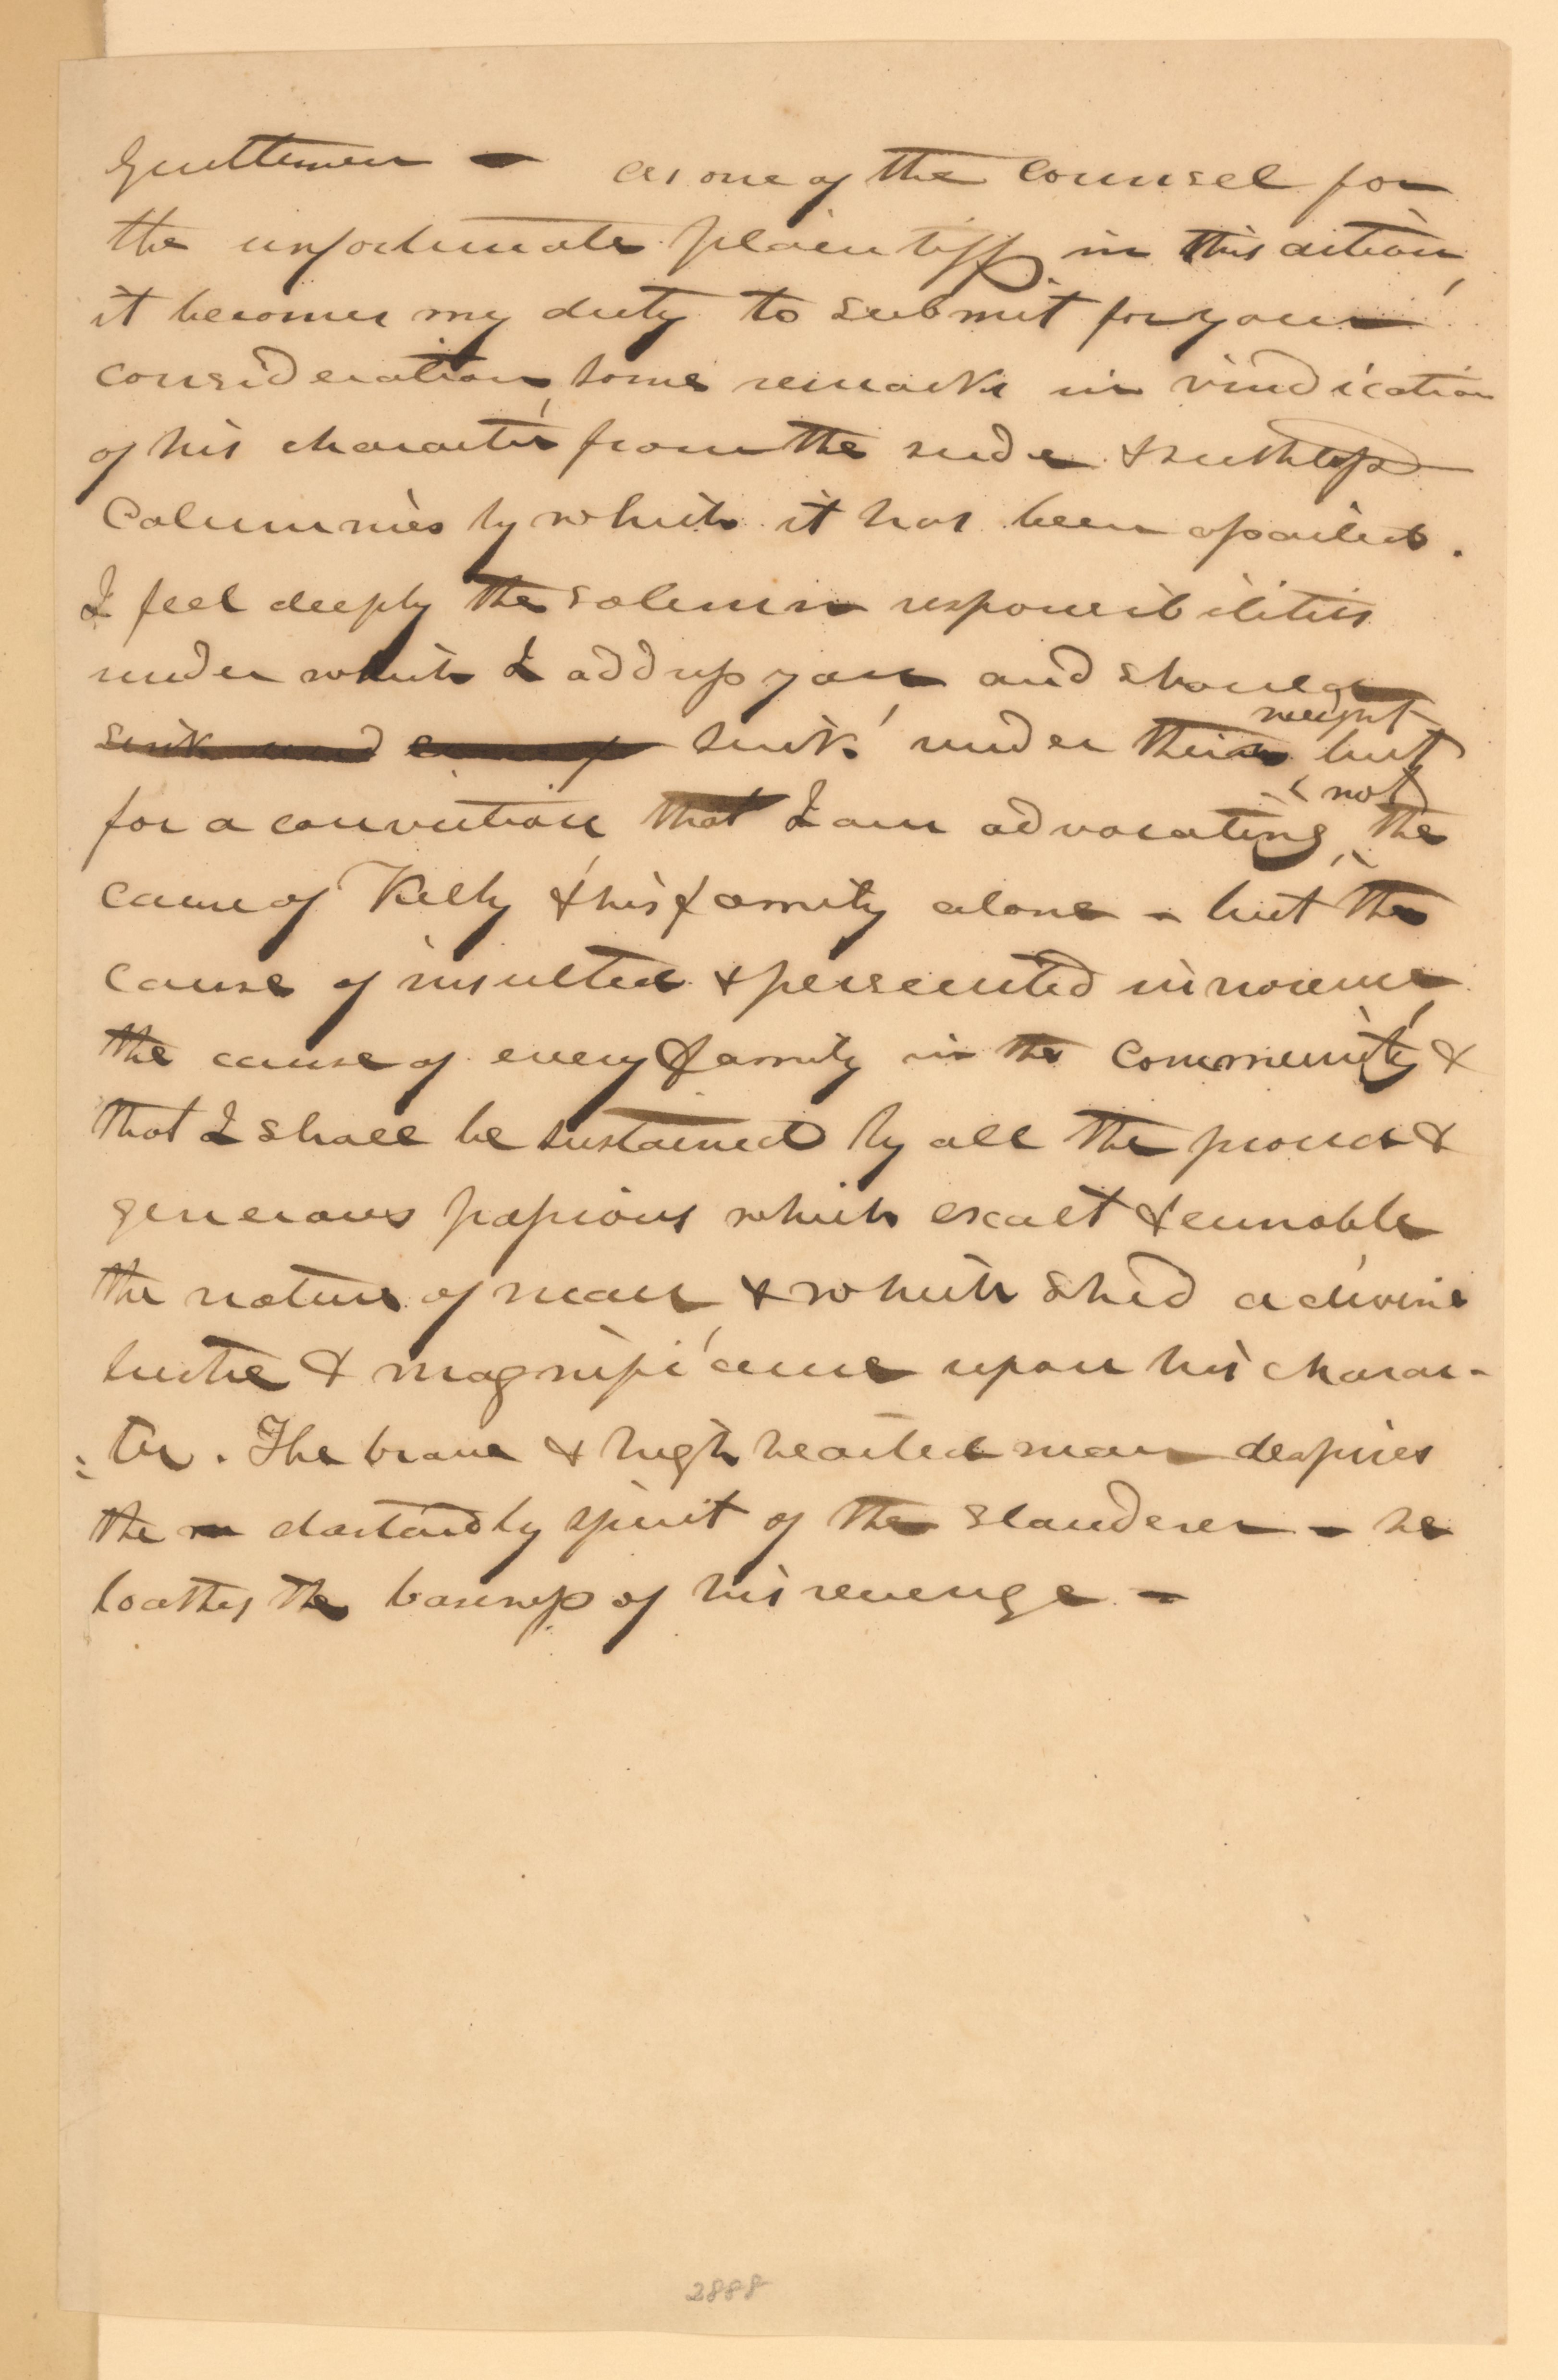 Gentlemen - as one of the counsel for
the unfortunate plaintiff in this action,
it becomes my duty to submit for your
consideration, some remarks in vindication
of his character from the rude & ruthless
calumnies by which it has been assailed.
I feel deeply the solemn responsibilities
under which I address you and should
sink and sink under their weight but
for a conviction that I am advocating not the
cause of Kelly & his family alone - but the
cause of insulted & persecuted innocence,
the cause of every family in the community &
that I shall be sustained by all the proud &
generous passions which exalt & ennoble
the nature of man & which shed a divine
lustre & magnificence upon his charac-
:ter. The brave & high hearted man despises
the dastardly spirit of the slanderer - he
loathes the baseness of his revenge -
2888